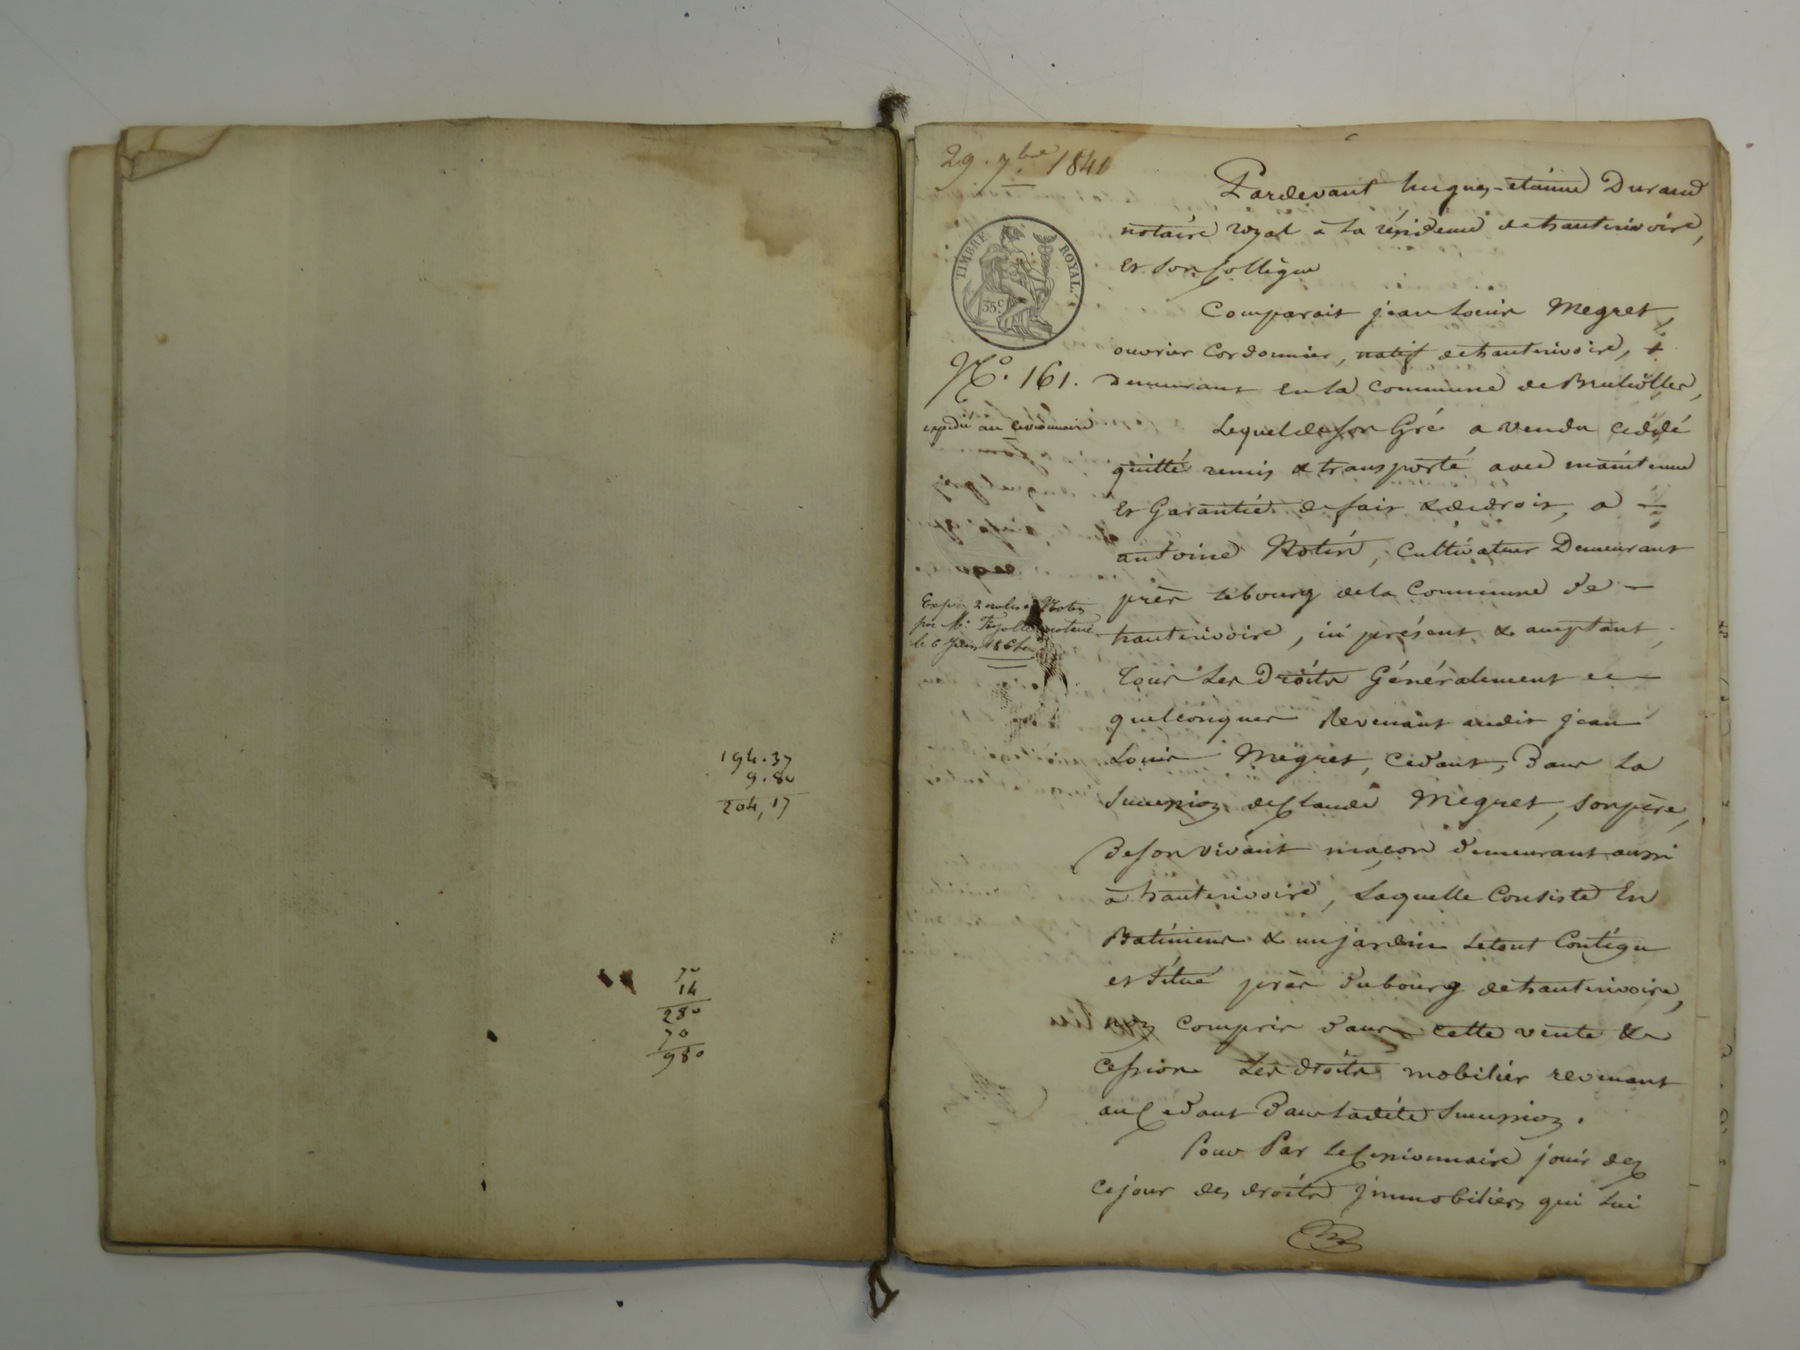 194.37
9.80
204,17
70
14
280
70
980
29. 7bre 1841
TIMBRE ROYAL.
35c
No. 161.
expédié au cessionnaire
le 6 juin
Pardevant hugues-étienne Durand
notaire royal à la résidence de hauterivoire,
et son Collègue
Comparait jean Louis Megret,
ouvrier Cordonnier, natif de hauterivoire, &
Demeurant en la Commune de Brulioles,
Lequel de son Gré a vendu cédé
quitté remis & transporté avec maintenue
et Garantie de fait & de droit, a —
antoine Notin, Cultivateur Demeurant
près le bourg de la Commune De —
hauterivoire, ici présent & acceptant,
Tous Les Droits Généralement
quelconques Revenant audit jean
Louis Mégret, Cédant, Dans La
Succession de Claude Mégret, son père,
De son vivant maçon demeurant aussi
à hauterivoire, Laquelle Consiste En
Batiment & un jardin Le tout Contigu
et situé près du bourg de hauterivoire,
Comprir dans cette vente &
Cession Les droits mobilier revenant
au Cedant Dans Ladite Succession.
Pour Par Le Cessionnaire jouir dez
Ce jour des droits immobiliers qui Lui